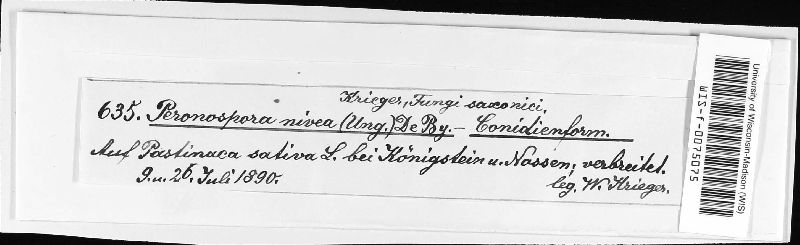 Krieger, Fungi saxonici.
635. Peronospora nivea (Ung.) De By. – Conidienform.
Auf Pastinaca sativa L. bei Königstein u. Nossen, verbreitet.
9. u. 26. Juli 1890. leg. W. Krieger.
University of Wisconsin-Madison (WIS)
WIS-F-0075075